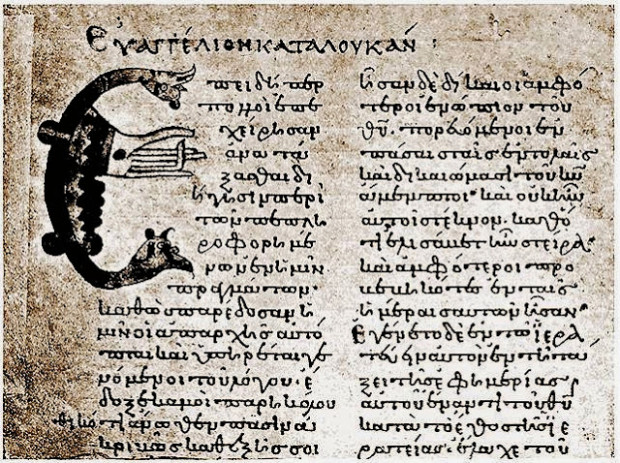 Εὐαγγέλιον κατὰ Λουκάν:
Ἐπειδήπερ
πολλοὶ ἐπε
χείρησαν
ἀνατά
ξασθαι δι
ήγησιν περὶ
τῶν πεπλη
ροφορημέ
νων ἐν ἡμῖν
πραγμάτων·
καθὼς παρέδοσαν ἡ
μῖν οἱ ἀπαρχῆς αὐτό
πται καὶ ὑπηρέται γε
νόμενοι τοῦ λόγου. ἔ
δοξε κἀμοὶ παρηκολου
θηκότι ἄνωθεν πᾶσιν ἀ
κριβῶς καθεξῆς σοι
ἦσαν δὲ δίκαιοι ἀμφό
τεροι ἐνώπιον τοῦ
θ̅υ̅. πορευόμενοι ἐν
πάσαις ταῖς ἐντολαῖς
καὶ δικαιώμασι τοῦ κ̅υ̅
ἄμεμπτοι· καὶ οὐκ ἦν
αὐτοῖς τέκνον. καθό
τι ἡ ελισάβετ ἦν στεῖρα·
καὶ ἀμφότεροι προ
βεβηκότες ἐν ταῖς
ἡμέραις αὐτῶν ἦσαν·
Ἐγένετο δὲ ἐν τῷ ἱερα
τεύειν αὐτὸν ἐν τῇ τά
ξει τῆς ἐφημερίας
αὐτοῦ ἔναντι τοῦ θ̅υ̅
κατὰ τὸ ἔθος τῆς ἱε
ρατείας. ἔλαχε τοῦ